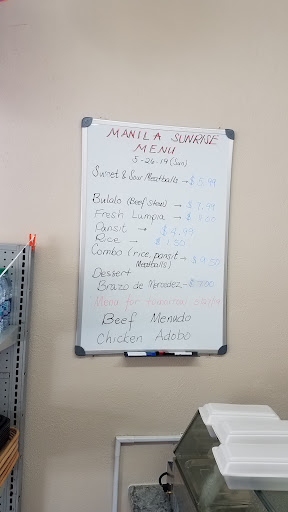 MANILA SUNRISE
MENU
5-26-19 (Sun)
Sweet & Sour Meatballs → $5.99
Bulalo (Beef Stew) → $7.99
Fresh Lumpia →
Pansit → $4.99
Rice → $1.50
Combo (rice, pansit → $9.50
Meatballs)
Dessert
Brazo de Mercedez -
Menu for tomorrow
Beef Menudo
Chicken Adobo